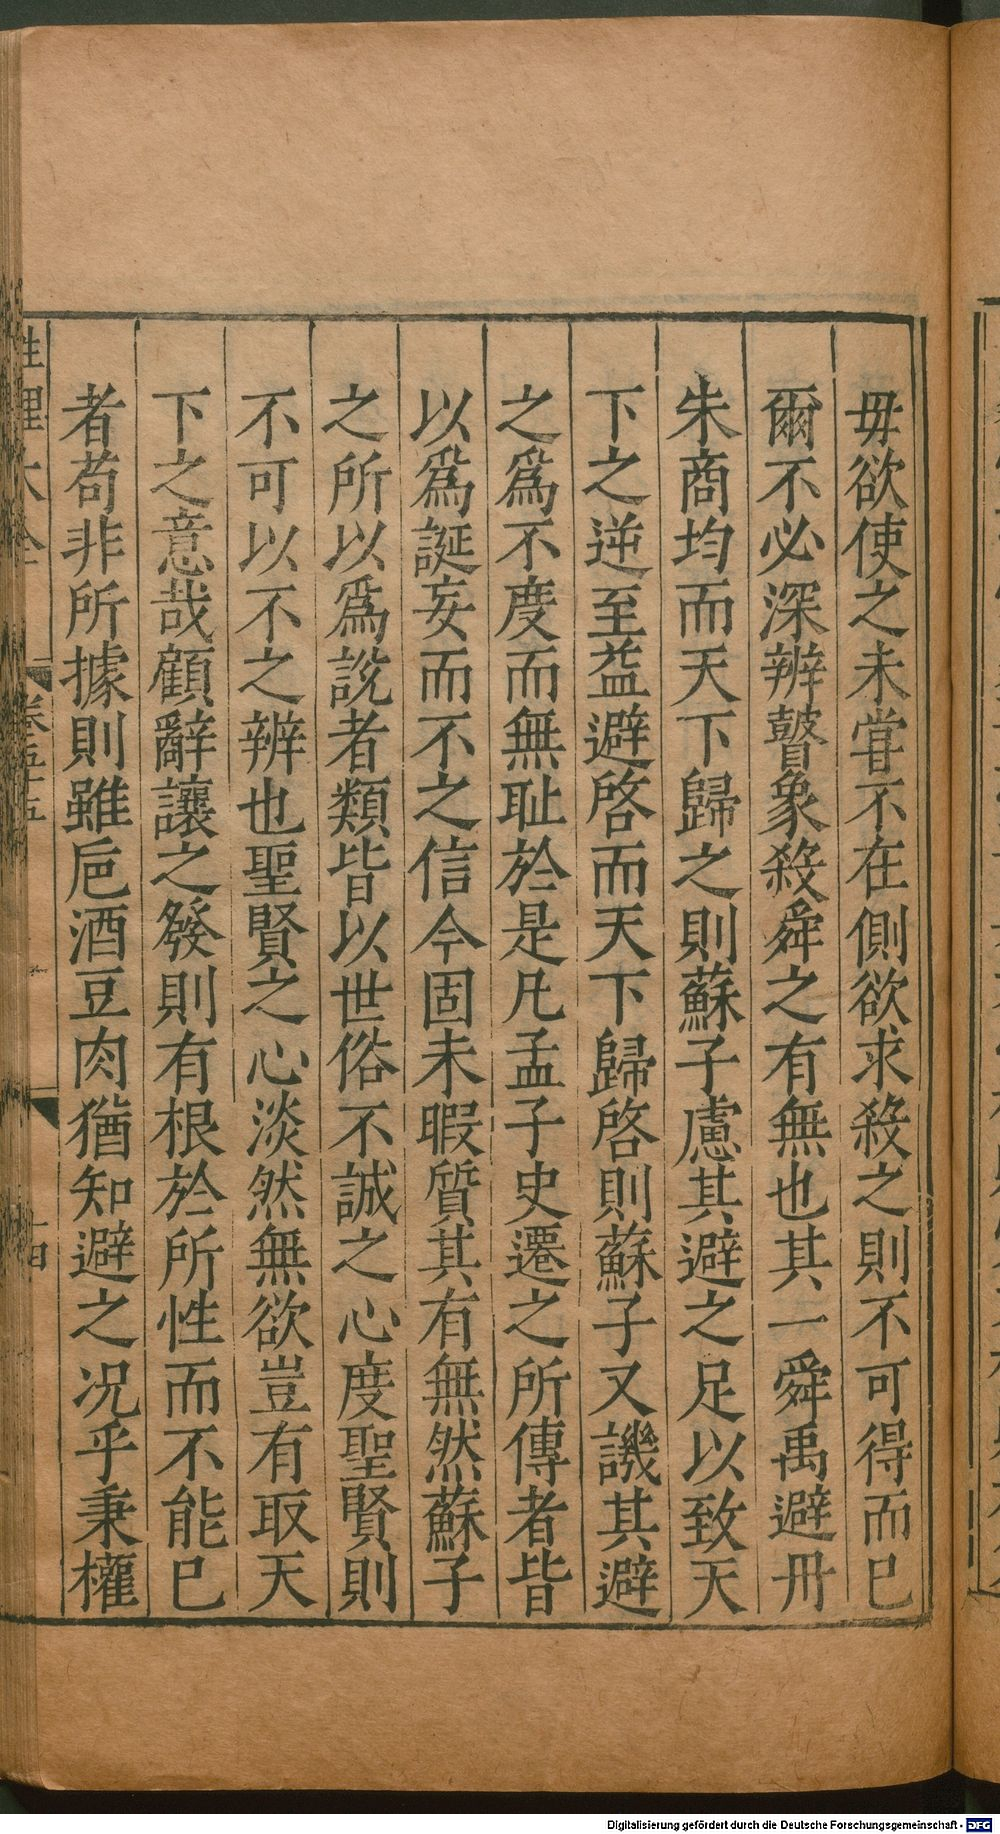 毋欲使之未甞不在側欲求殺之則不可得而巳
爾不必深辨瞽象殺舜之有無也其一舜禹避丹
朱商均而天下歸之則蘇子慮其避之足以致天
下之逆至益避啓而天下歸啓則蘇子又譏其避
之爲不度而無耻於是凡孟子史遷之所傳者皆
以爲誕妄而不之信今固未暇質其有無然蘇子
之所以爲説者類皆以世俗不誠之心度聖賢則
不可以不之辨也聖賢之心淡然無欲豈有取天
下之意哉顧辭讓之發則有根於所性而不能巳
者苟非所據則雖巵酒豆肉猶知避之况乎秉權
性理大全
卷五十五
十四
Digitalisierung gefördert durch die Deutsche Forschungsgemeinschaft - DFG